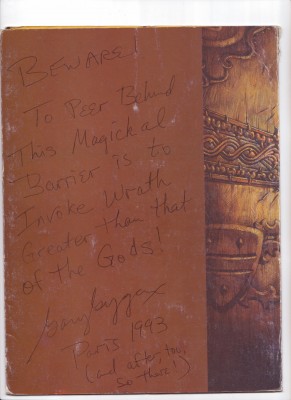 BEWARE!
To Peer Behind
This Magickal
Barrier is to
Invoke Wrath
Greater than that
of the Gods!
Gary Gygax
Paris 1993
(and after too,
so there!)